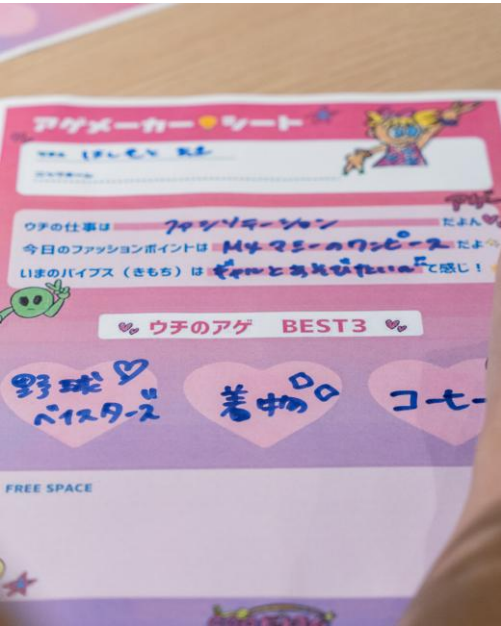 アゲメーカー シート
ウチの仕事は ファシリテーション だよん
今日のファッションポイントは Myマミーのワンピース だよ
いまのバイブス(きもち)は ギャルとあそびたいの〜 て感じ!
ウチのアゲ BEST3
野球 ベイスターズ
着物
コーヒー
FREE SPACE